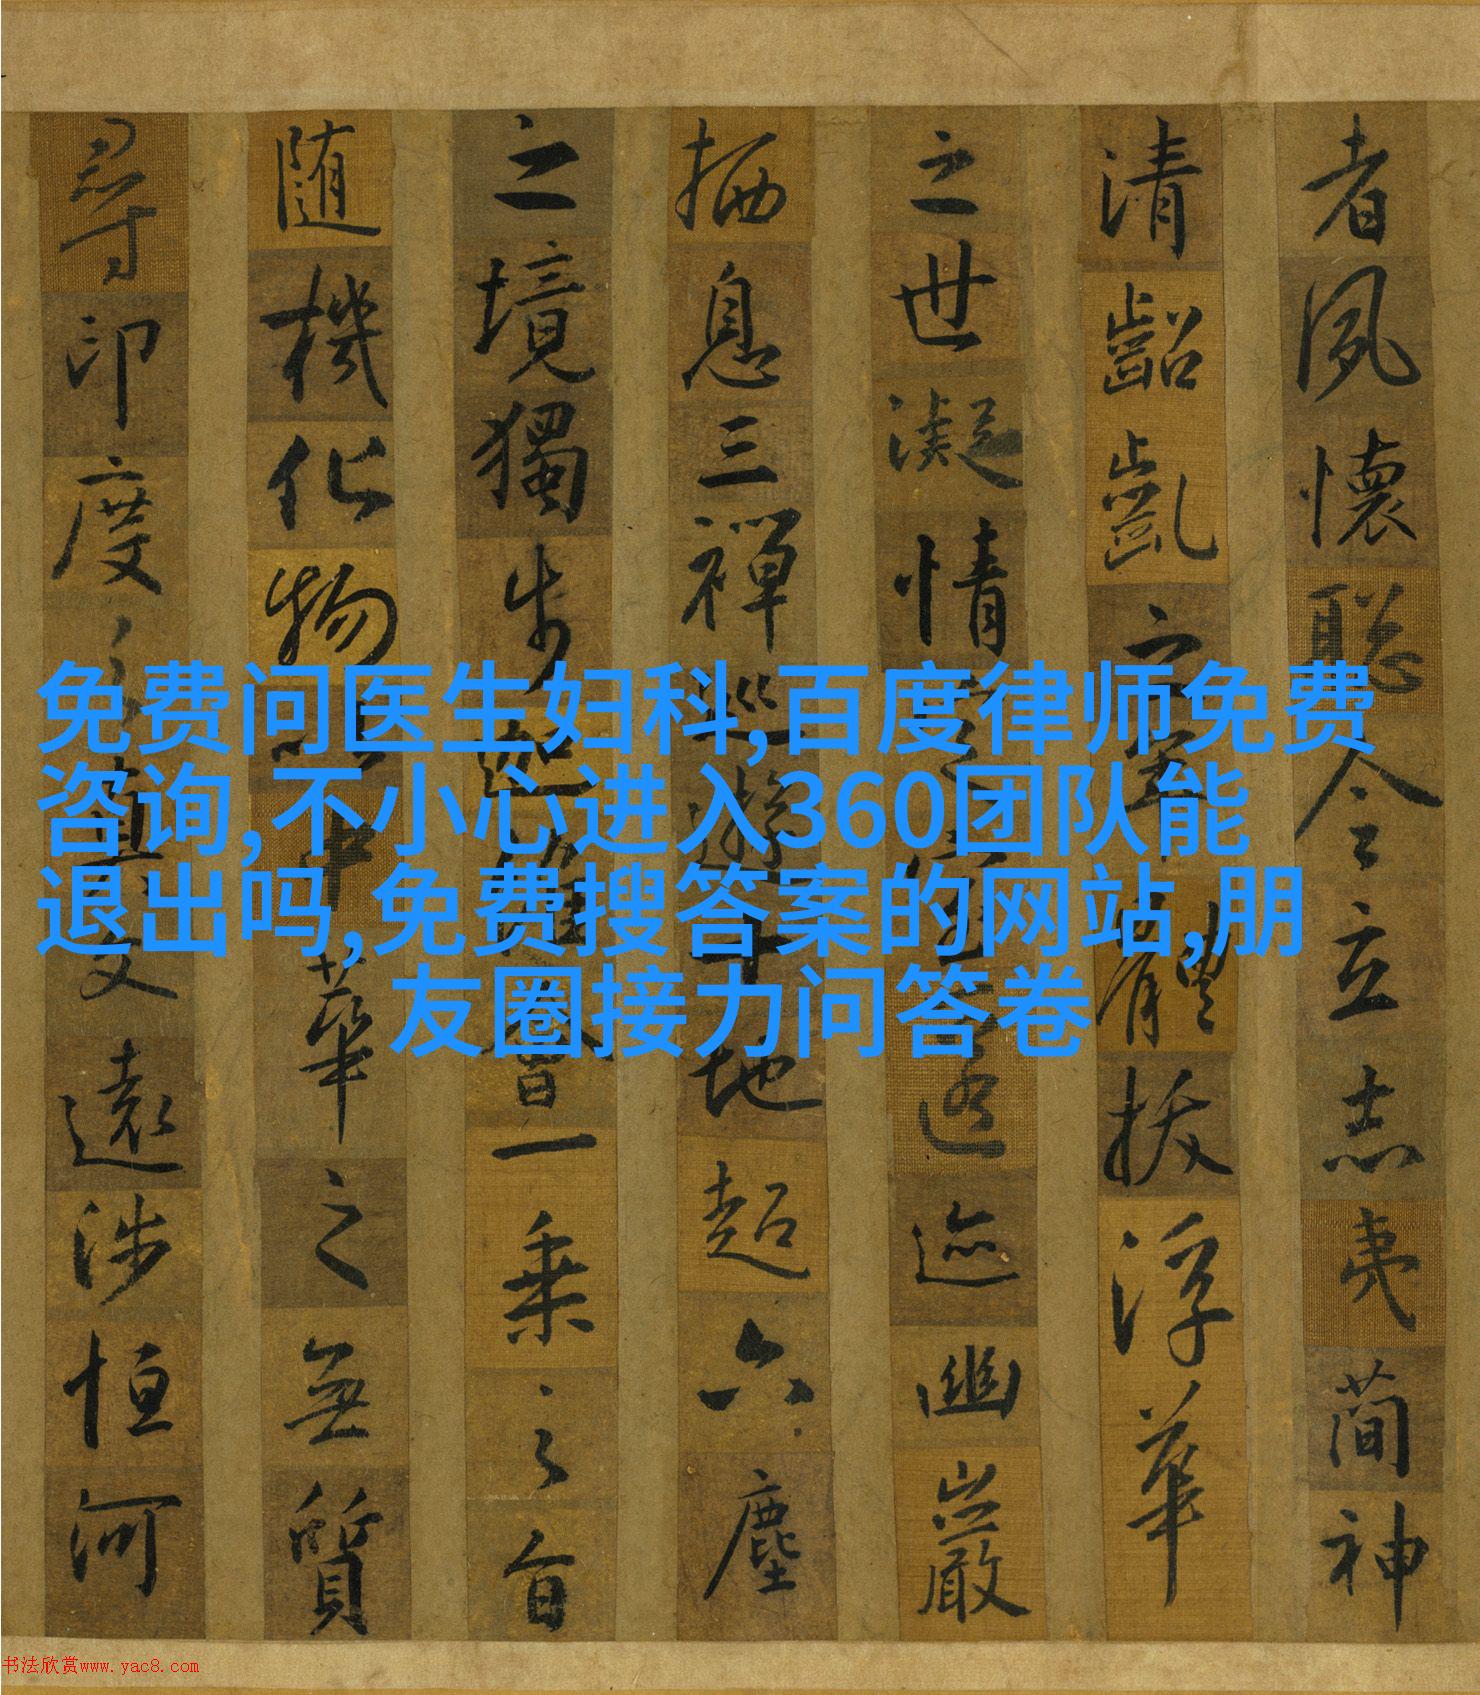 者夙懷聰令立志夷簡神
清齠齔之年體拔浮華
之世凝情定室匿迹幽巖
栖息三禪巡遊十地超六塵
之境獨步迦維會一乘之旨
随機化物以中華之無質
尋印度之真文遠涉恒河
免费问医生妇科,百度律师免费
咨询,不小心进入360团队能
退出吗,免费搜答案的网站,朋
友圈接力问答卷
书法欣赏www.yac8.com